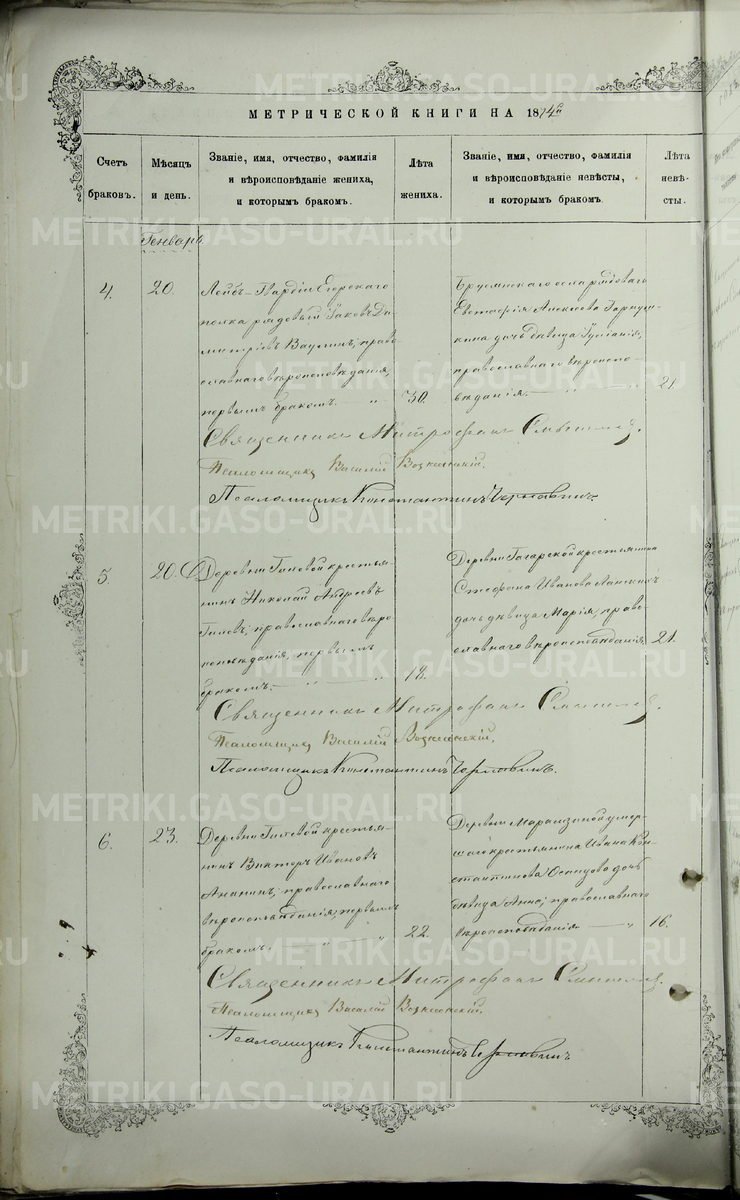 МЕТРИЧЕСКОЙ КНИГИ НА 1874 й
Счетъ браковъ.
Мѣсяцъ и день.
Званіе, имя, отчество, фамилія
и вѣроисповѣданіе жениха,
и которымъ бракомъ.
Лѣта жениха.
Званіе, имя, отчество, фамилія
и вѣроисповѣданіе невѣсты,
и которымъ бракомъ.
Лѣта невѣсты.
Генварь.
4.
20.
Лейбъ-Гвардіи Егерскаго
полка рядовый Іаковъ Ди-
митріевъ Ваулинъ, право-
славнаго вѣроисповѣданія,
первымъ бракомъ. — "
30.
Евстафія Алексѣева
дочь дѣвица
православнаго вѣроиспо-
вѣданія. — "
21.
Священникъ Митрофанъ
Псаломщикъ Василій Вознесенскій.
Псаломщикъ Константинъ Чернавинъ.
5
20.
Деревни Гилевой крестья-
нинъ Николай Андреевъ
Гилевъ, православнаго вѣро-
исповѣданія, первымъ
бракомъ. — " — "
18.
Деревни Гагарской крестьянина
Стефана Иванова
дочь дѣвица Марія, право-
славнаго вѣроисповѣданія
21.
Священникъ Митрофанъ
Псаломщикъ Василій Вознесенскій.
Псаломщикъ Константинъ Чернавинъ.
6.
23.
Деревни Гилевой крестья-
нинъ Викторъ Ивановъ
Ананьинъ, православнаго
вѣроисповѣданія, первымъ
бракомъ. " — "
22.
Деревни умер-
шаго крестьянина Ивана Кон-
стантинова дочь
дѣвица Анна, православнаго
вѣроисповѣданія — "
16.
Священникъ Митрофанъ
Псаломщикъ Василій Вознесенскій.
Псаломщикъ Константинъ Чернавинъ
METRIKI.GASO-URAL.RU